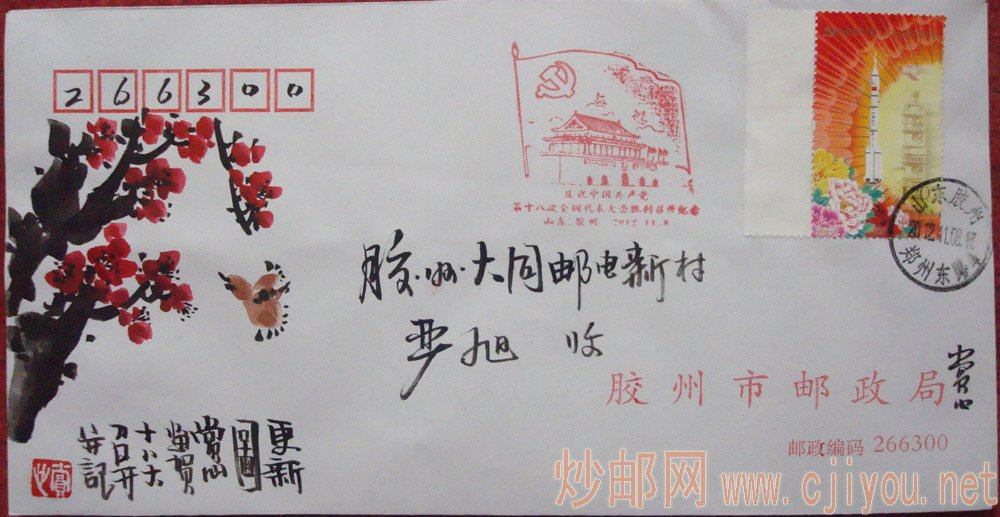 266300
庆祝中国共产党
第十八次全国代表大会胜利召开纪念
山东·胶州 2012.11.8
山东胶州
2012.11.08
郑州东路
胶州大同邮电新村
旭 收
赏心
胶州市邮政局
邮政编码 266300
更新
国画
赏心
贺
十八大
召开
并记
炒邮网 www.cjiyou.net